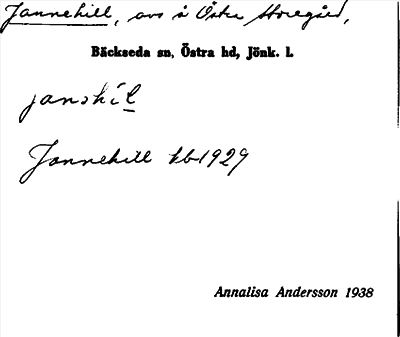 Jannehill, avs å Östra Storegård,
Bäckseda sn, Östra hd, Jönk. l.
janshíl
Jannehill kb 1929
Annalisa Andersson 1938